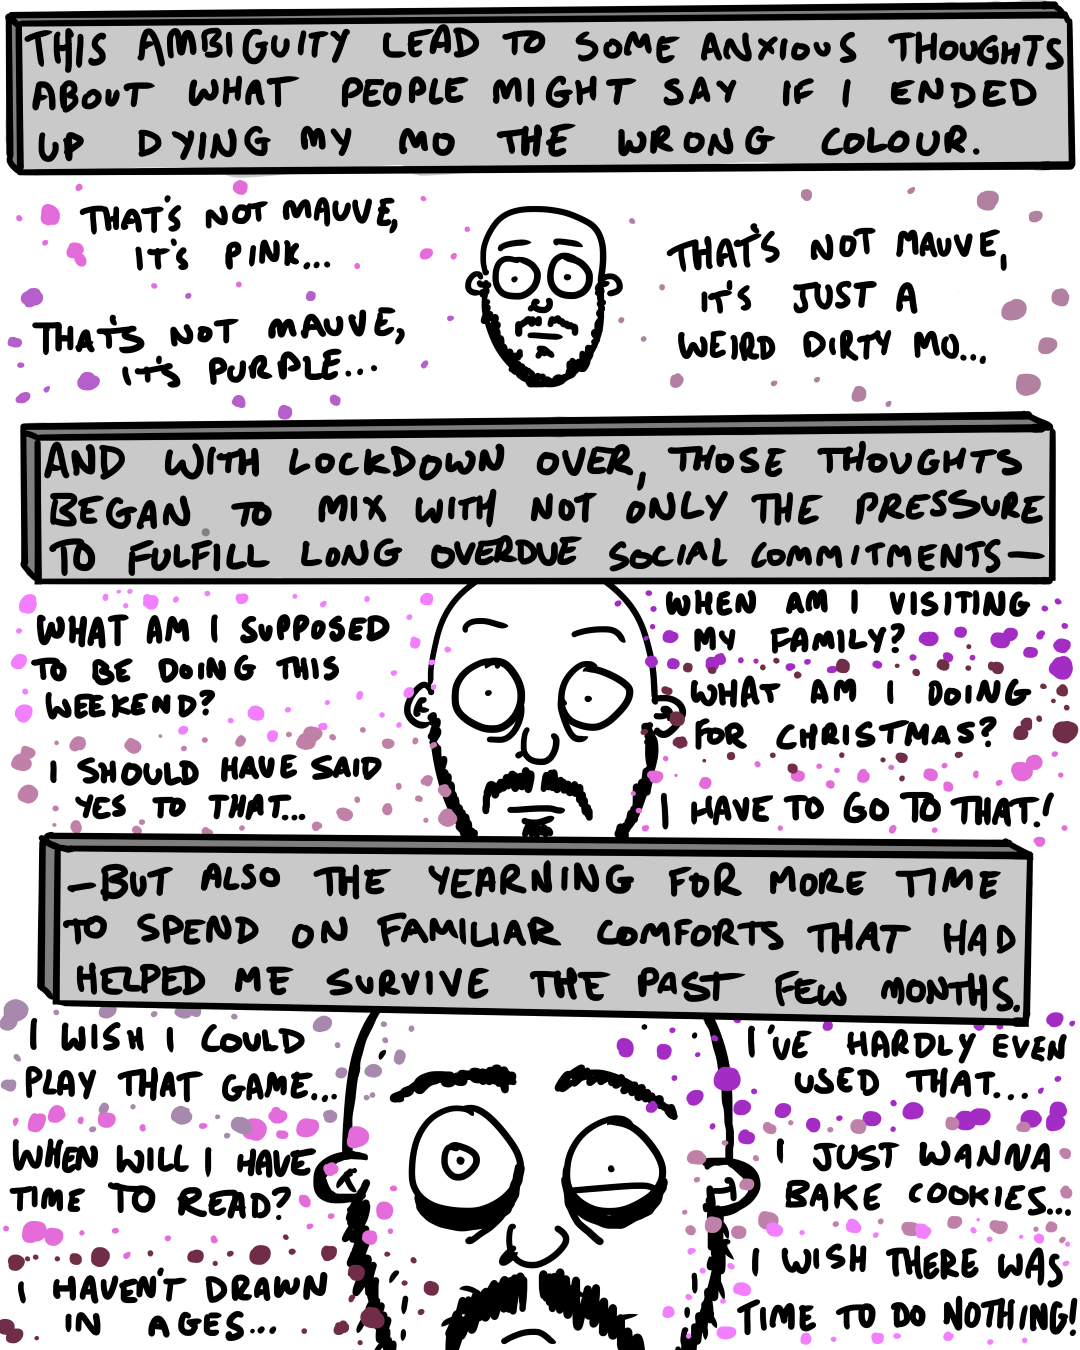 THIS AMBIGUITY LEAD TO SOME ANXIOUS THOUGHTS
ABOUT WHAT PEOPLE MIGHT SAY IF I ENDED
UP DYING MY MO THE WRONG COLOUR.
THAT'S NOT MAUVE,
IT'S PINK...
THAT'S NOT MAUVE,
IT'S PURPLE...
THAT'S NOT MAUVE,
IT'S JUST A
WEIRD DIRTY MO...
AND WITH LOCKDOWN OVER, THOSE THOUGHTS
BEGAN TO MIX WITH NOT ONLY THE PRESSURE
TO FULFILL LONG OVERDUE SOCIAL COMMITMENTS—
WHAT AM I SUPPOSED
TO BE DOING THIS
WEEKEND?
I SHOULD HAVE SAID
YES TO THAT...
WHEN AM I VISITING
MY FAMILY?
WHAT AM I DOING
FOR CHRISTMAS?
I HAVE TO GO TO THAT!
—BUT ALSO THE YEARNING FOR MORE TIME
TO SPEND ON FAMILIAR COMFORTS THAT HAD
HELPED ME SURVIVE THE PAST FEW MONTHS.
I WISH I COULD
PLAY THAT GAME...
WHEN WILL I HAVE
TIME TO READ?
I HAVEN'T DRAWN
IN AGES...
I'VE HARDLY EVEN
USED THAT...
I JUST WANNA
BAKE COOKIES...
I WISH THERE WAS
TIME TO DO NOTHING!